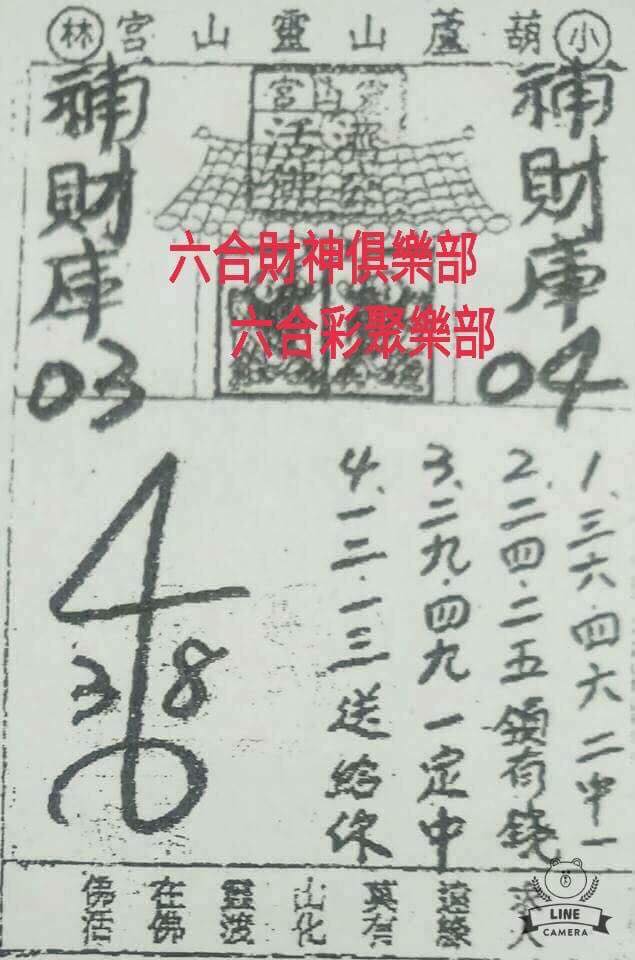 小葫蘆山靈山宮林
濟公
活佛
補財庫04
補財庫03
六合財神俱樂部
六合彩聚樂部
1、三六.四六二中一
2、二四.二五領有錢
3、二九.四九一定中
4、一二.一三送給你
3 8
佛在靈山莫遠求
活佛渡化有緣人
LINE
CAMERA